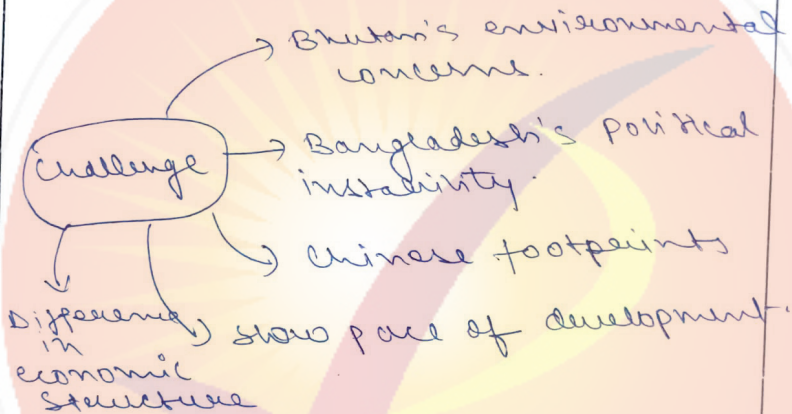 Bhutan's environmental
concerns.
Challenge
Bangladesh's political
instability.
Chinese footprints
slow pace of development.
Difference
in
economic
structure